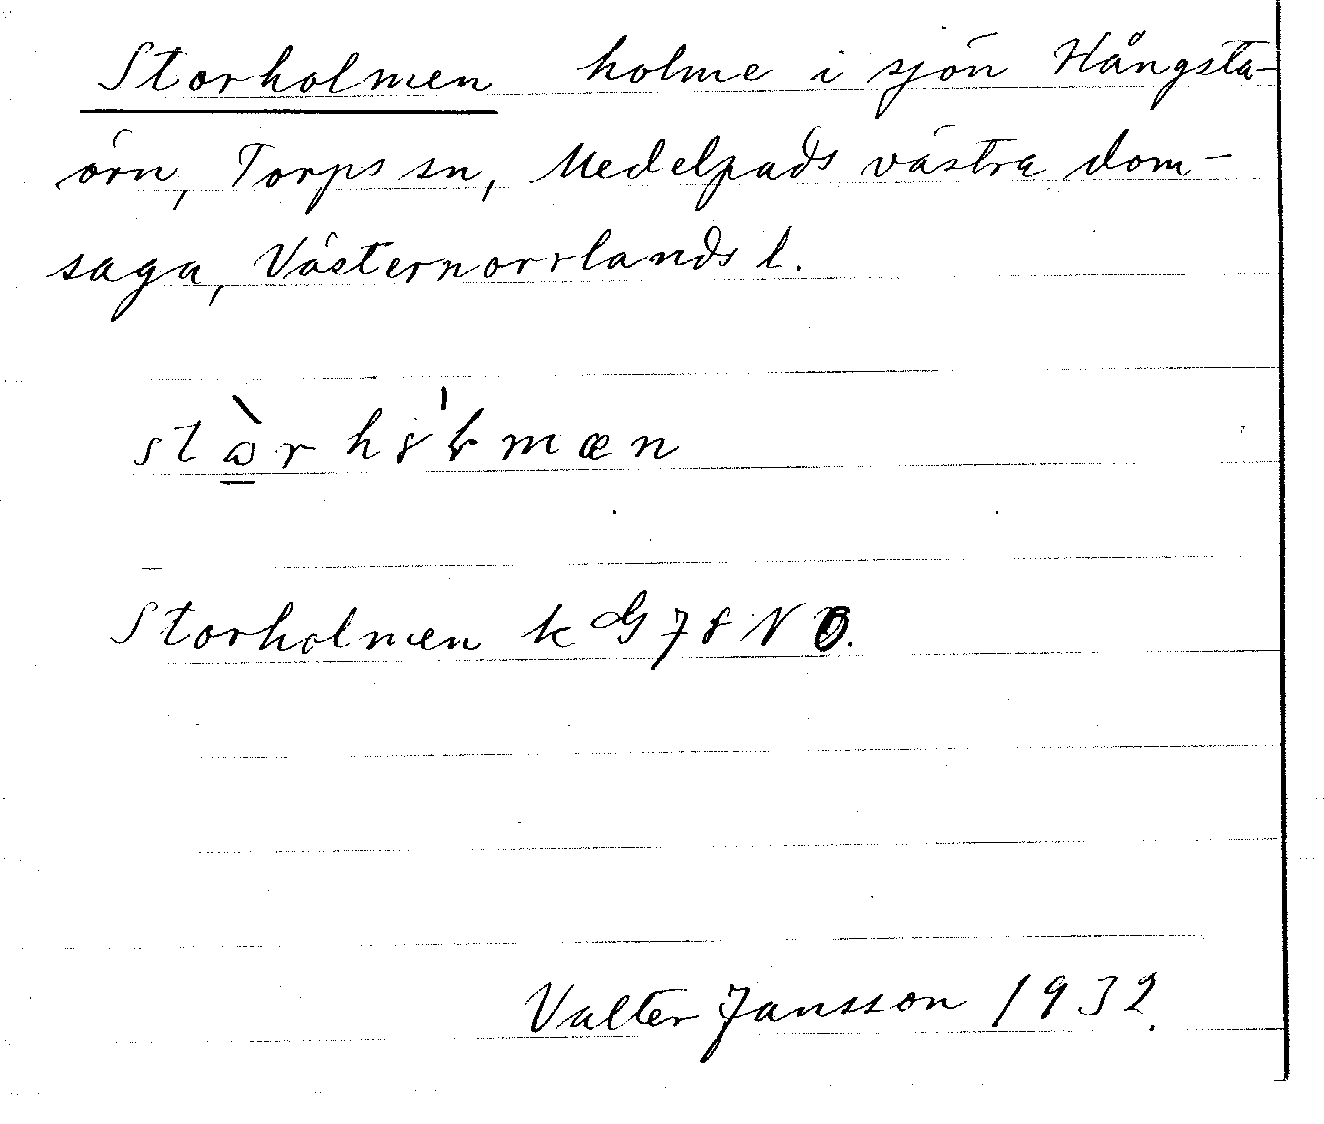 Storholmen holme i sjön Hångsta-
örn, Torps sn, Medelpads västra dom-
saga, Västernorrlands l.
Storholmen k G 78 N O.
Valter Jansson 1932.